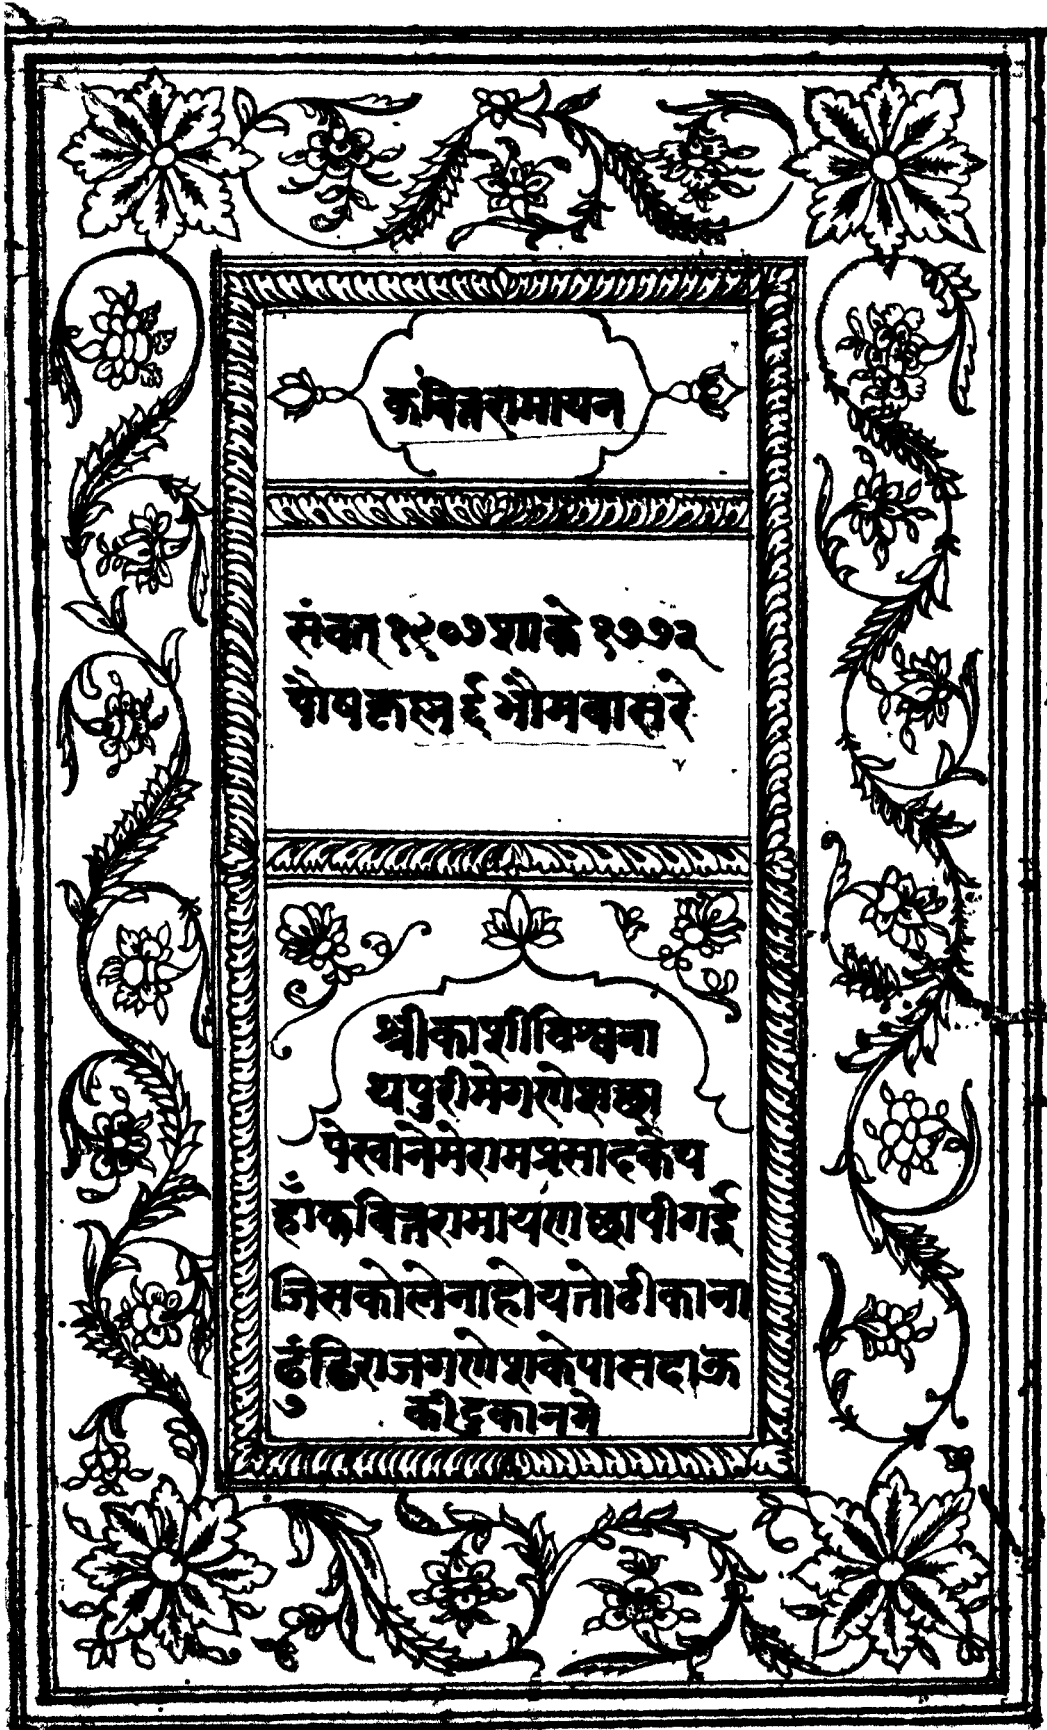 कवित्तरामायन
संवत् १९०७ शाके १७७२
पौषकृष्ण ई भौमवासरे
श्रीकाशीविश्वना
थपुरीमेगणेशछा
पेखानेमेरामप्रसादकेय
हाँकवित्तरामायणछापीगई
जिसकोलेनाहोयतोठीकाना
ढुंढिराजगणेशकेपासदाऊ
कीदुकानमे